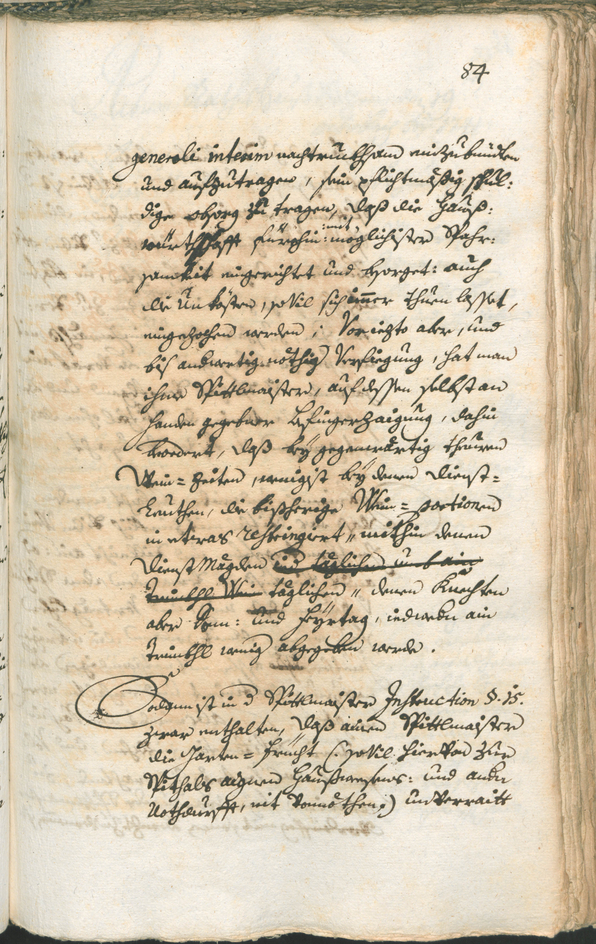 84
generali interim nachtruckhsam einzubinden
und aufzutragen, sein pflichtmässig schul:
dige obsorg zu tragen, daß die Hauß:
würthschafft fürohin mit möglichister Spahr:
samkeit eingerichtet und besorget: auch
die Unkösten, sovil sich immer thuen lasset,
eingezohen werden; Vor iezto aber, und
bis anderwertig nöthig Verfiegung, hat man
ihme Spittlmaister, auf dessen selbst an
handen gegebne Anzaigung, dahin
beordert, daß bey gegenwärtig theuren
Wein=Zeiten, wenigist bey denen Dienst=
Leuthen, die bißherige Wein=portionen
in etwas restringiert, mithin denen
Dienst Mägden täglichen umb ain
Trünkhl Wein täglichen, denen Knechten
aber Sonn: und Feyrtag, iedwedn ain
Trünkhl wenig abgegeben werde.
Sodann ist in d Spittlmaister Instruction §. 15.
zwar enthalten, daß ainem Spittlmaister
die Garten=Frücht (: sovil hiervon zur
Spithals aignen Haußwesens: und andn
Nothdurfft, nit vonnöthen:) unverraitt